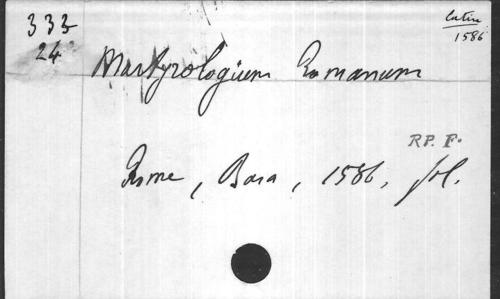 333
24
Latin
1586
Martyrologium Romanum
R.P. F.
Rome, Basa, 1586, fol.